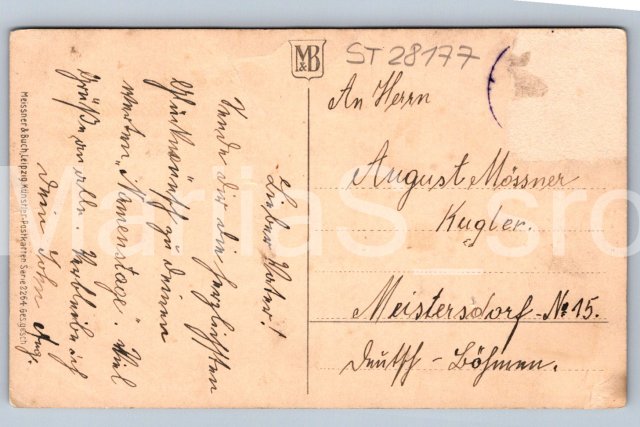 M&B
ST 28177
An Herrn
August Mössner
Kugler.
Meistersdorf-No 15.
Deutsch-Böhmen.
Lieber Vater!
Sende dir die herzlichsten
Glückwünsch zu deinen
werten "Namenstage". Viel
Grüße an alle. Verbleibe ich
dein Sohn Aug.
Meissner & Buch, Leipzig Künstler-Postkarten Serie 2264 Ges. gesch.